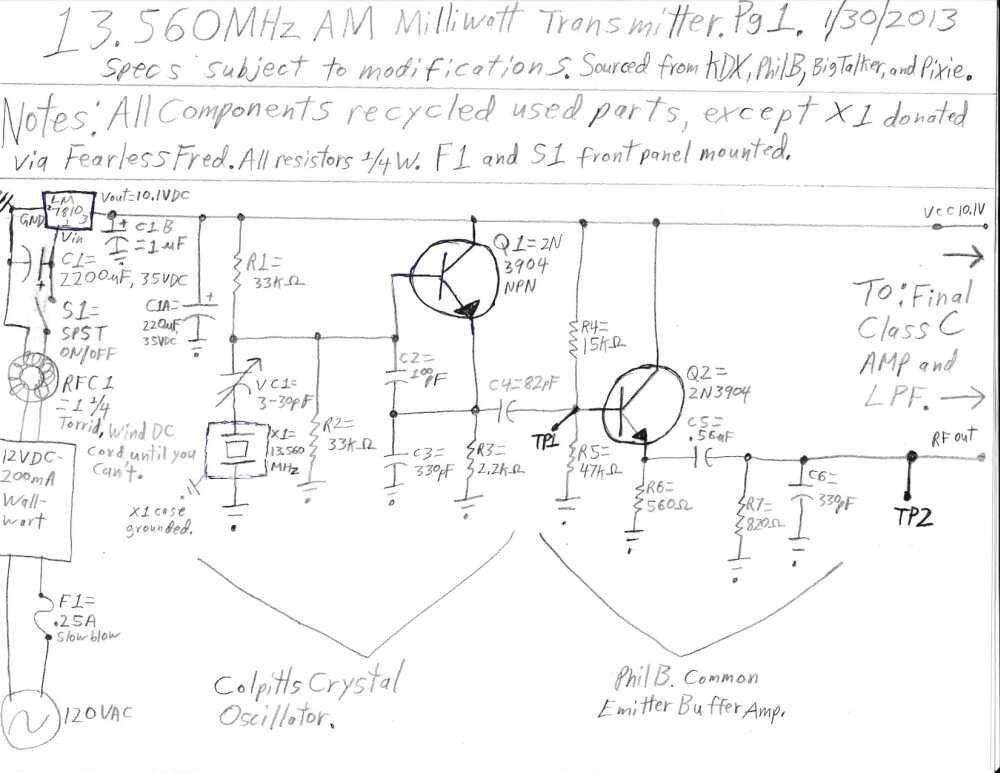 13.560MHz AM Milliwatt Transmitter. Pg1. 1/30/2013
Specs subject to modifications. Sourced from KDX, PhilB, BigTalker, and Pixie.
Notes: All Components recycled used parts, except X1 donated
via FearlessFred. All resistors 1/4W. F1 and S1 front panel mounted.
LM
7810
2
3
1
GND
Vin
Vout=10.1VDC
C1B
=1uF
+
C1=
2200uF, 35VDC
+
S1=
SPST
ON/OFF
RFC1
=1 1/4
Torrid, Wind DC
cord until you
Can't.
12VDC-
200mA
Wall-
wart
F1=
.25A
Slow blow
120VAC
C1A=
220uF
35VDC
+
R1=
33KΩ
VC1=
3-30pF
X1=
13.560
MHz
X1 case
grounded.
R2=
33KΩ
C2=
100
pF
C3=
330pF
Q1=2N
3904
NPN
R3=
2.2KΩ
C4=82pF
TP1
R4=
15KΩ
R5=
47KΩ
Q2=
2N3904
R6=
560Ω
C5=
.56uF
R7=
820Ω
C6=
330pF
TP2
Vcc 10.1V
TO: Final
Class C
AMP and
LPF.
RF out
Colpitts Crystal
Oscillator.
Phil B. Common
Emitter Buffer Amp.